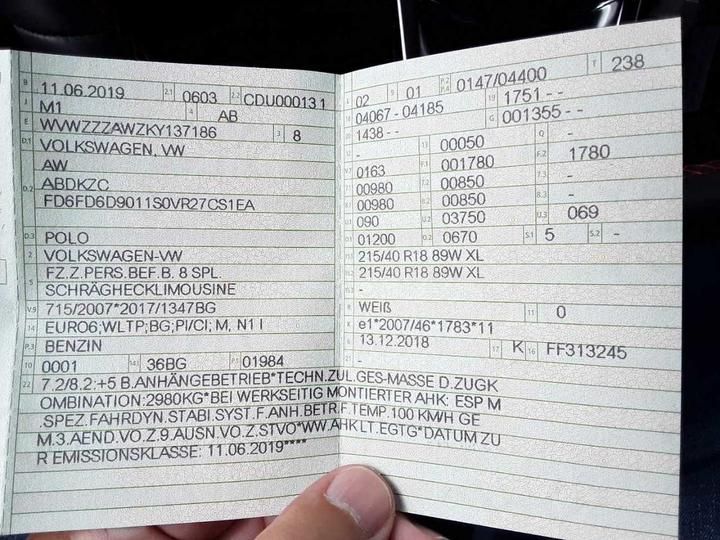 B 11.06.2019 2.1 0603 2.2 CDU000131
J M1 4 AB
E WVWZZZAWZKY137186 3 8
D.1 VOLKSWAGEN, VW
AW
D.2 ABDKZC
FD6FD6D9011S0VR27CS1EA
D.3 POLO
2 VOLKSWAGEN-VW
5 FZ.Z.PERS.BEF.B. 8 SPL.
SCHRÄGHECKLIMOUSINE
V.9 715/2007*2017/1347BG
14 EURO6;WLTP;BG;PI/CI; M, N1 I
P.3 BENZIN
10 0001 14.1 36BG P.1 01984
L 02 9 01 P.2 P.4 0147/04400 T 238
18 04067 - 04185 19 1751 - -
20 1438 - - G 001355 - -
12 - 13 00050 Q -
V.7 0163 F.1 001780 F.2 1780
7.1 00980 7.2 00850 7.3 -
8.1 00980 8.2 00850 8.3 -
U.1 090 U.2 03750 U.3 069
O.1 01200 O.2 0670 S.1 5 S.2 -
15.1 215/40 R18 89W XL
15.2 215/40 R18 89W XL
-
R WEIß 11 0
K e1*2007/46*1783*11
6 13.12.2018 17 K 16 FF313245
21 -
22 7.2/8.2:+5 B.ANHÄNGEBETRIEB*TECHN.ZUL.GES-MASSE D.ZUGK
OMBINATION:2980KG*BEI WERKSEITIG MONTIERTER AHK: ESP M
.SPEZ.FAHRDYN.STABI.SYST.F.ANH.BETR.F.TEMP.100 KM/H GE
M.3.AEND.VO.Z.9.AUSN.VO.Z.STVO*WW.AHK LT.EGTG*DATUM ZU
R EMISSIONSKLASSE: 11.06.2019****